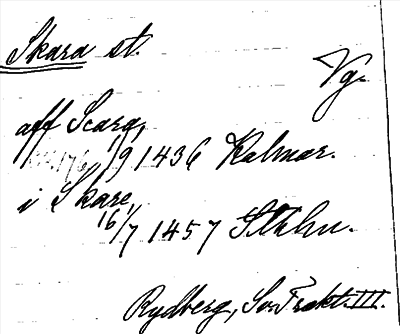 Skara st.
Vg.
aff Scara,
1/9 1436 Kalmar.
i Skare,
16/7 1457 Sthlm.
Rydberg, Sv. Trakt. III.